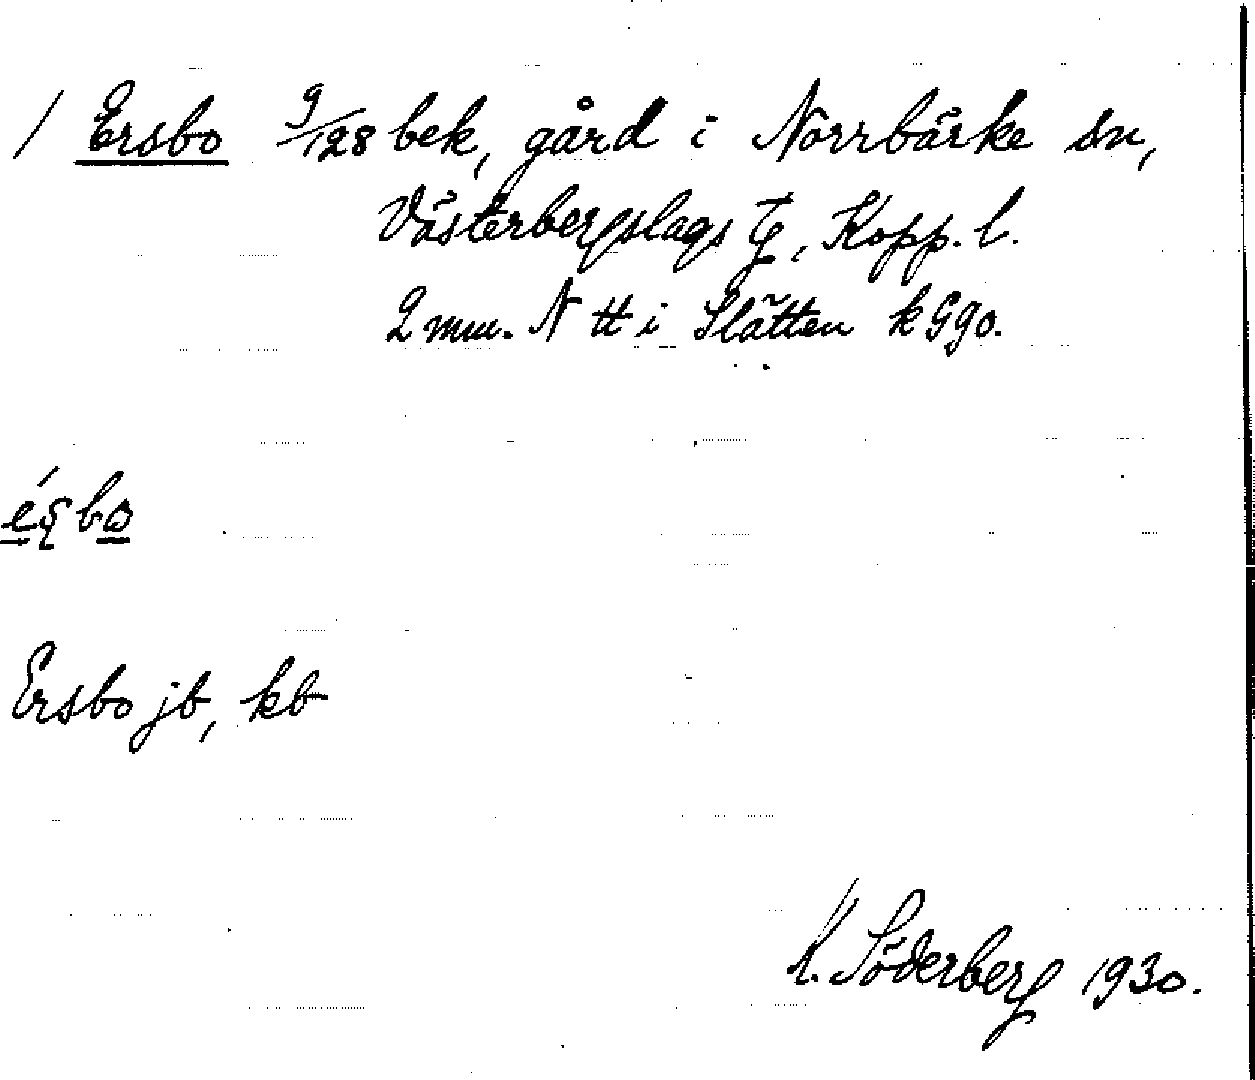 / Ersbo 9/128 bek, gård i Norrbärke sn,
Västerbergslags tg, Kopp. l.
2 mm. N tt i Slätten k Ggo.
Ersbo jb, kb
K. Söderberg 1930.